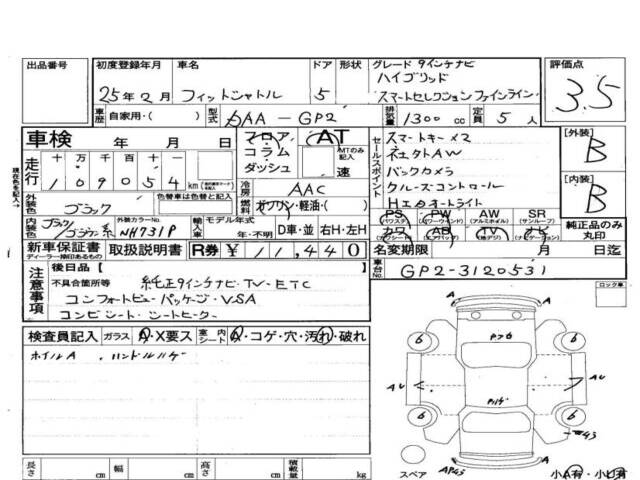 出品番号 初度登録年月 車名 ドア 形状 グレード 9インチナビ 評価点
25年2月 フィットシャトル 5 ハイブリッド
スマートセレクションファインライン 3.5
車歴 自家用・( ) 型式 DAA-GP2 排気量 1300cc 定員 5人
車検 年 月 日 フロア・コラム・ダッシュ AT MTのみ記入 速
走行 十万千百十一 109054 km
冷房 AAC
燃料 ガソリン・軽油・( )
外装色 ブラック 色替車は色替と記入
内装色 ブラック ブラック系 外装カラーNo. NH731P 輸入車 モデル年式 年・不明 D車・並 右H・左H
セールスポイント
スマートキー×2
社外AW
バックカメラ
クルーズコントロール
HIDオートライト
PS PW AW SR
(パワステ) (パワーウインド) (アルミホイル) (サンルーフ)
カワ AB TV ナビ
純正品のみ丸印
[外装] B
[内装] B
新車保証書 取扱説明書 R券 ¥11,440
ディーラー捺印あるもの
名変期限 月 日迄
車台No. GP2-3120531
注意事項
後日品 [ ]
不具合箇所等 純正9インチナビ・TV・ETC
コンフォートビューパッケージ・VSA
コンビシート・シートヒーター
現在色を記入→
ロック車
検査員記入 ガラス A・X要ス 室内シート A・コゲ・穴・汚れ・破れ
ホイルA ハンドルハゲ
長さ cm 幅 cm 高さ cm 積載量 kg
6 6
AU AU
6 6
AP43
スペア 小A有・小U有